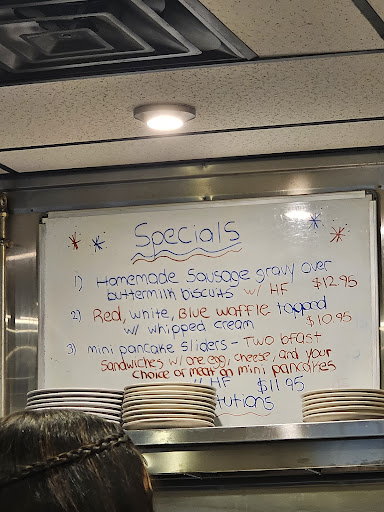 Specials
1) Homemade Sausage gravy over
buttermilk biscuits w/ HF $12.95
2) Red, white, Blue waffle topped
w/ whipped cream $10.95
3) mini pancake sliders - Two bfast
Sandwiches w/ one egg, cheese, and your
Choice of meat on mini pancakes
w/ HF $11.95
tutions